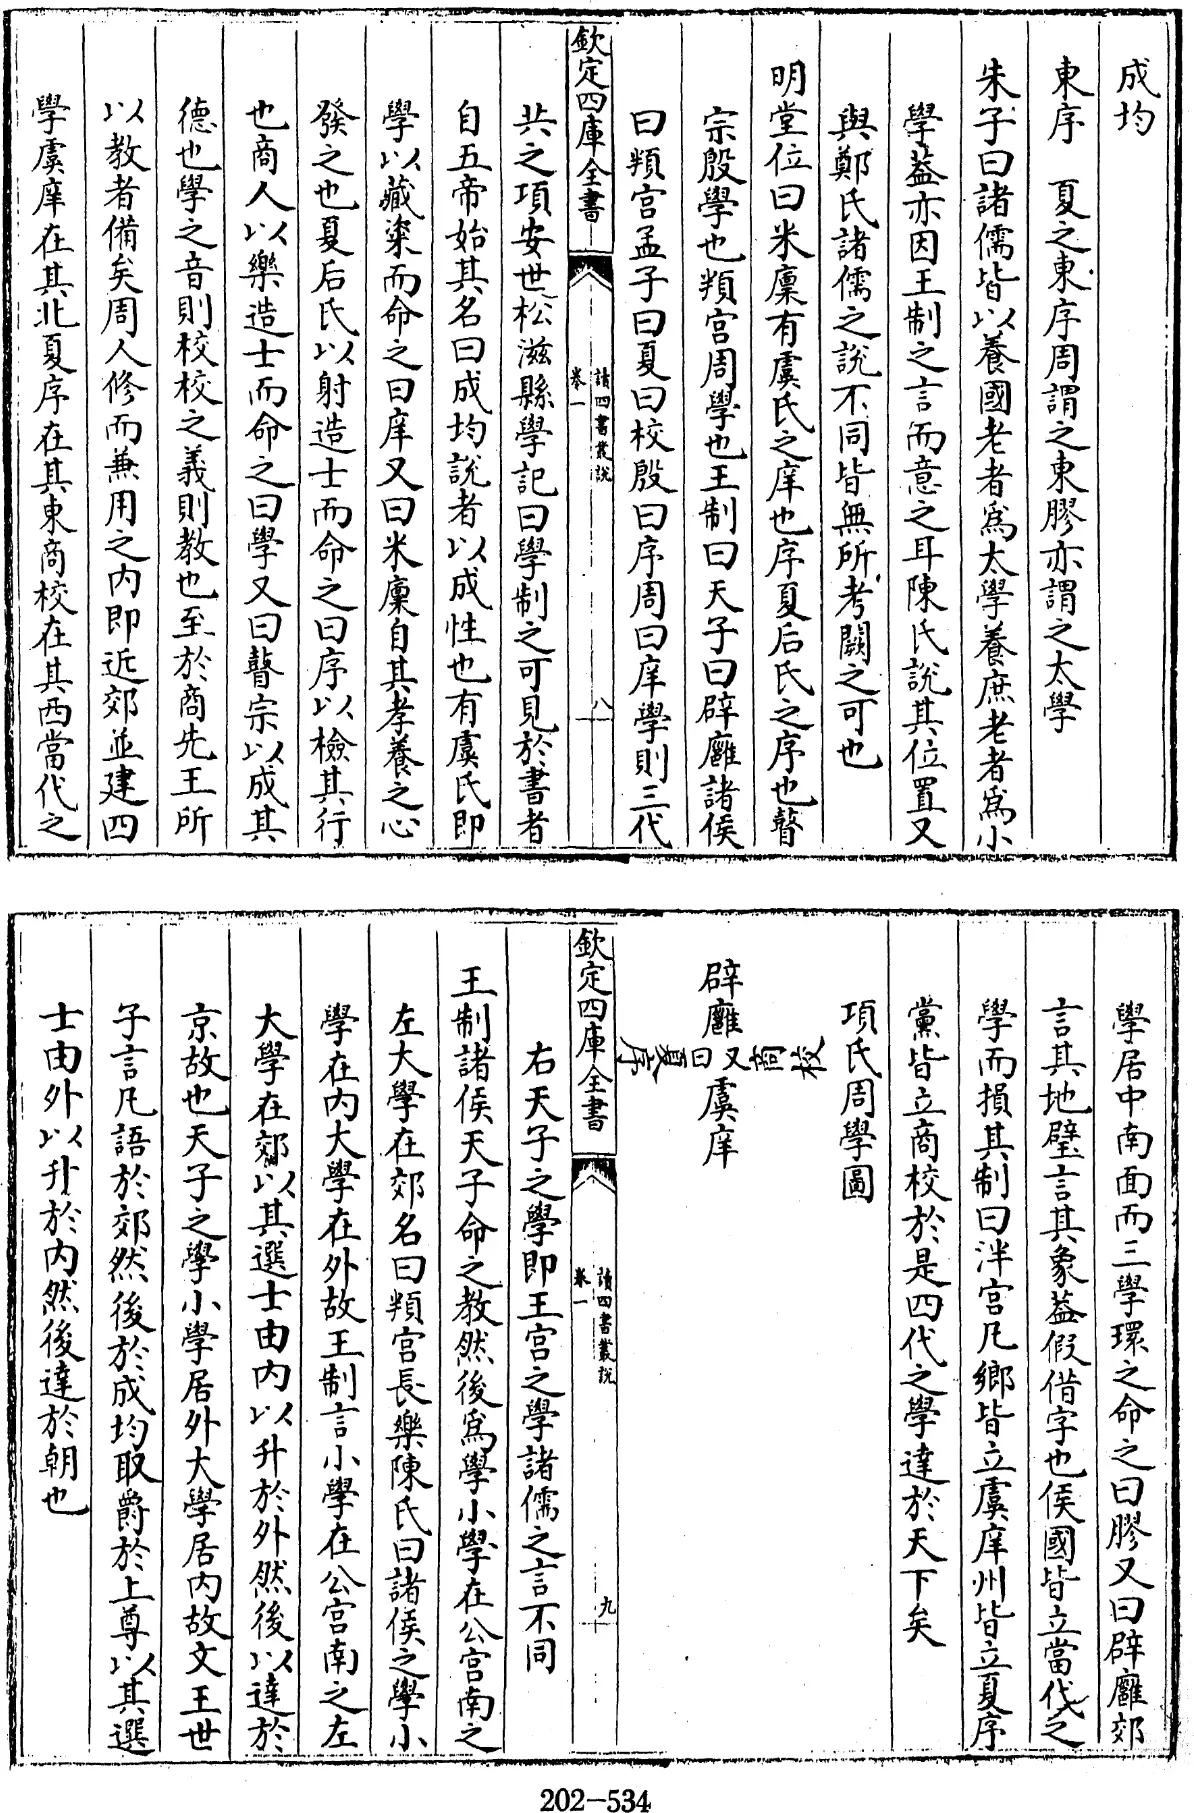 成均
東序　夏之東序周謂之東膠亦謂之太學
朱子曰諸儒皆以養國老者爲太學養庶老者爲小
學葢亦因王制之言而意之耳陳氏說其位置又
與鄭氏諸儒之說不同皆無所考闕之可也
明堂位曰米廩有虞氏之庠也序夏后氏之序也瞽
宗殷學也頖宮周學也王制曰天子曰辟廱諸侯
曰頖宮孟子曰夏曰校殷曰序周曰庠學則三代
欽定四庫全書
讀四書叢說
卷一
八
共之項安世松滋縣學記曰學制之可見於書者
自五帝始其名曰成均說者以成性也有虞氏即
學以藏粢而命之曰庠又曰米廩自其孝養之心
發之也夏后氏以射造士而命之曰序以檢其行
也商人以樂造士而命之曰學又曰瞽宗以成其
德也學之音則校校之義則教也至於商先王所
以教者備矣周人修而兼用之內即近郊並建四
學虞庠在其北夏序在其東商校在其西當代之
學居中南面而三學環之命之曰膠又曰辟廱郊
言其地璧言其象葢假借字也侯國皆立當代之
學而損其制曰泮宮凡鄉皆立虞庠州皆立夏序
黨皆立商校於是四代之學達於天下矣
項氏周學圖
商校
辟廱又曰虞庠
夏序
欽定四庫全書
讀四書叢說
卷一
九
右天子之學即王宮之學諸儒之言不同
王制諸侯天子命之教然後爲學小學在公宮南之
左大學在郊名曰頖宮長樂陳氏曰諸侯之學小
學在內大學在外故王制言小學在公宮南之左
大學在郊以其選士由內以升於外然後以達於
京故也天子之學小學居外大學居內故文王世
子言凡語於郊然後於成均取爵於上尊以其選
士由外以升於內然後達於朝也
202-534